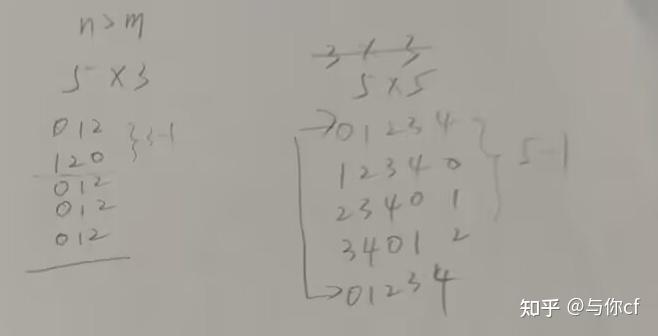 n>m
5 × 3
0 1 2
1 2 0
0 1 2
0 1 2
0 1 2
3-1
3 × 3
5 × 5
0 1 2 3 4
1 2 3 4 0
2 3 4 0 1
3 4 0 1 2
0 1 2 3 4
5-1
知乎 @与你cf